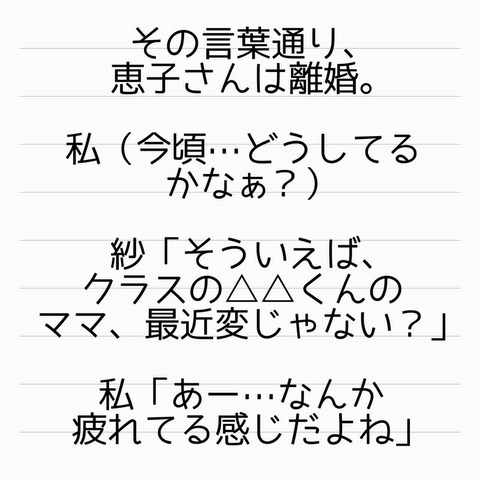 その言葉通り、
恵子さんは離婚。
私（今頃…どうしてる
かなぁ？）
紗「そういえば、
クラスの△△くんの
ママ、最近変じゃない？」
私「あー…なんか
疲れてる感じだよね」